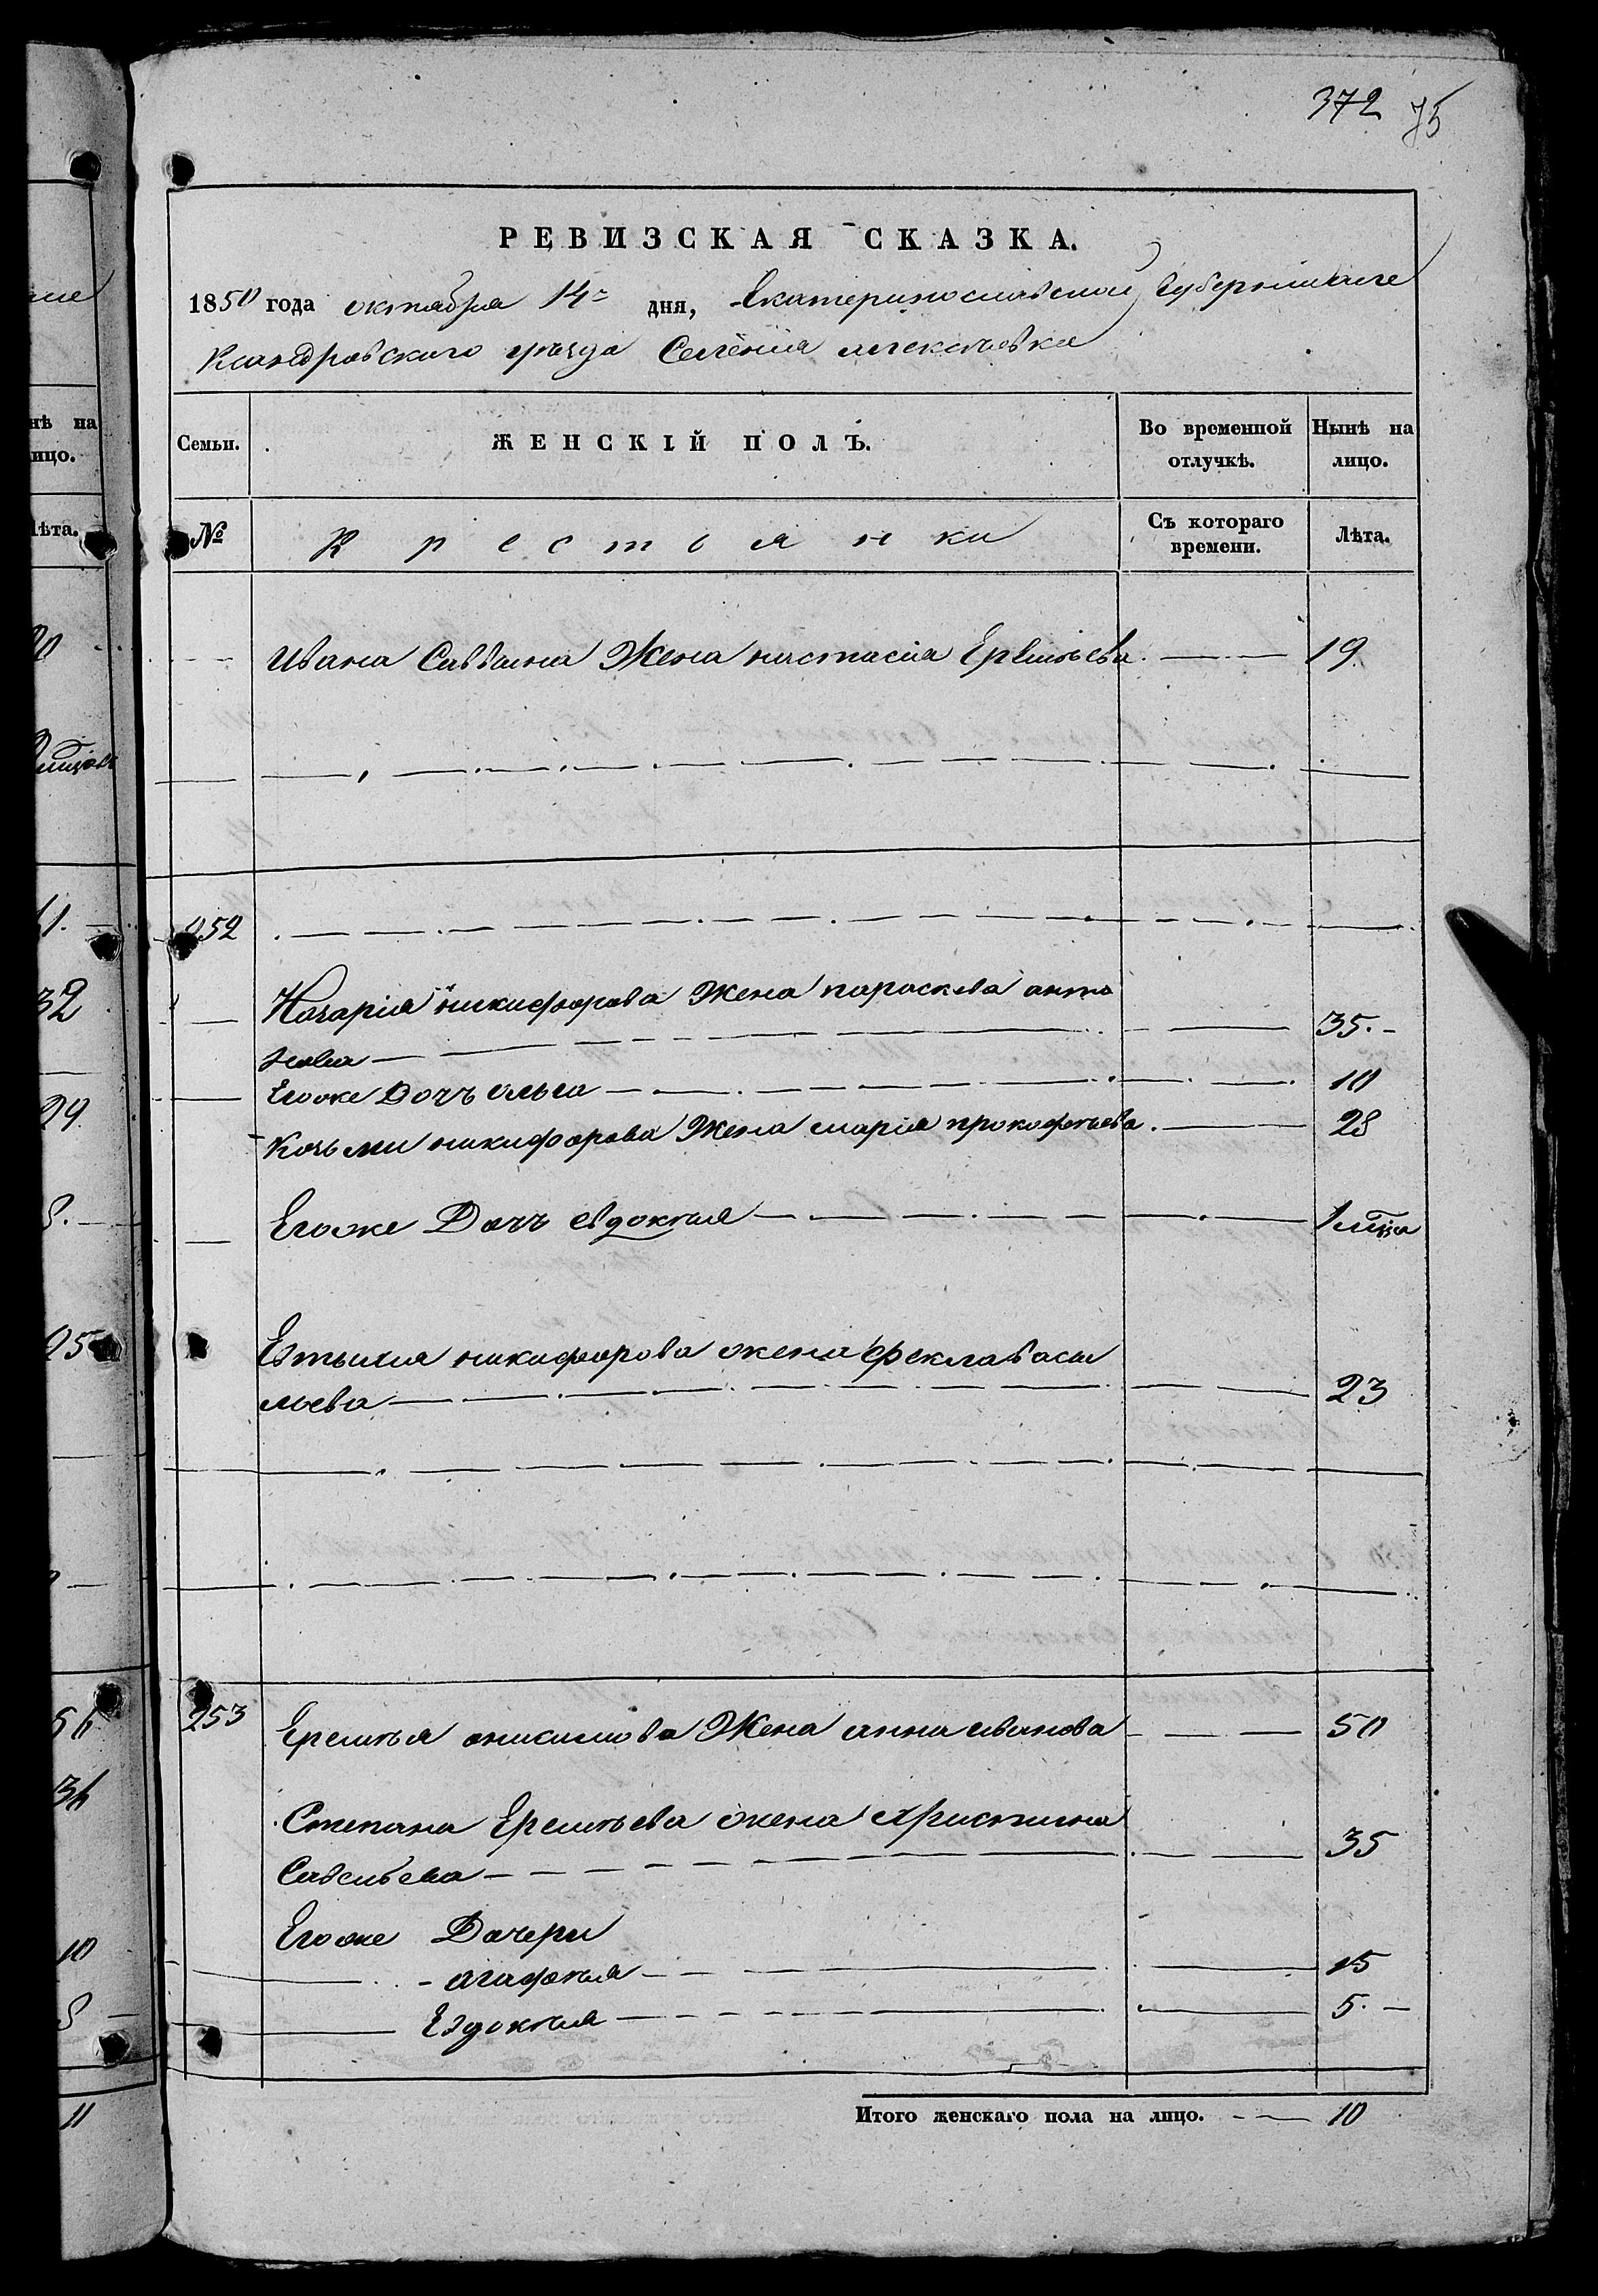 372 75
РЕВИЗСКАЯ СКАЗКА.
1850 года октября 14 дня, Екатеринославской Губернии Але
ксандровского уезда Селения Алексѣевки
Семьи. ЖЕНСКІЙ ПОЛЪ. Во временной отлучкѣ. Нынѣ на лицо.
№ Крестьянки Съ котораго времени. Лѣта.
Ивана Саввина Жена настасия Еремѣева 19
252
Назарія никифорова Жена параскева анто
нова 35
Егоже Дочъ ольга 10
Козьми никифорова Жена марія прокофьева 28
Егоже Дочъ евдокѣя 1 мѣца
Евтыхия никифорова жена фекла васи
льева 23
253 Еремѣя онисимова Жена анна иванова 50
Степана Еремѣева жена христина
Савельева 35
Егоже Дочери
агафѣя 15
Евдокѣя 5
Итого женскаго пола на лицо. 10
нѣ на
ицо.
ѣта.
32
29
25
10
11